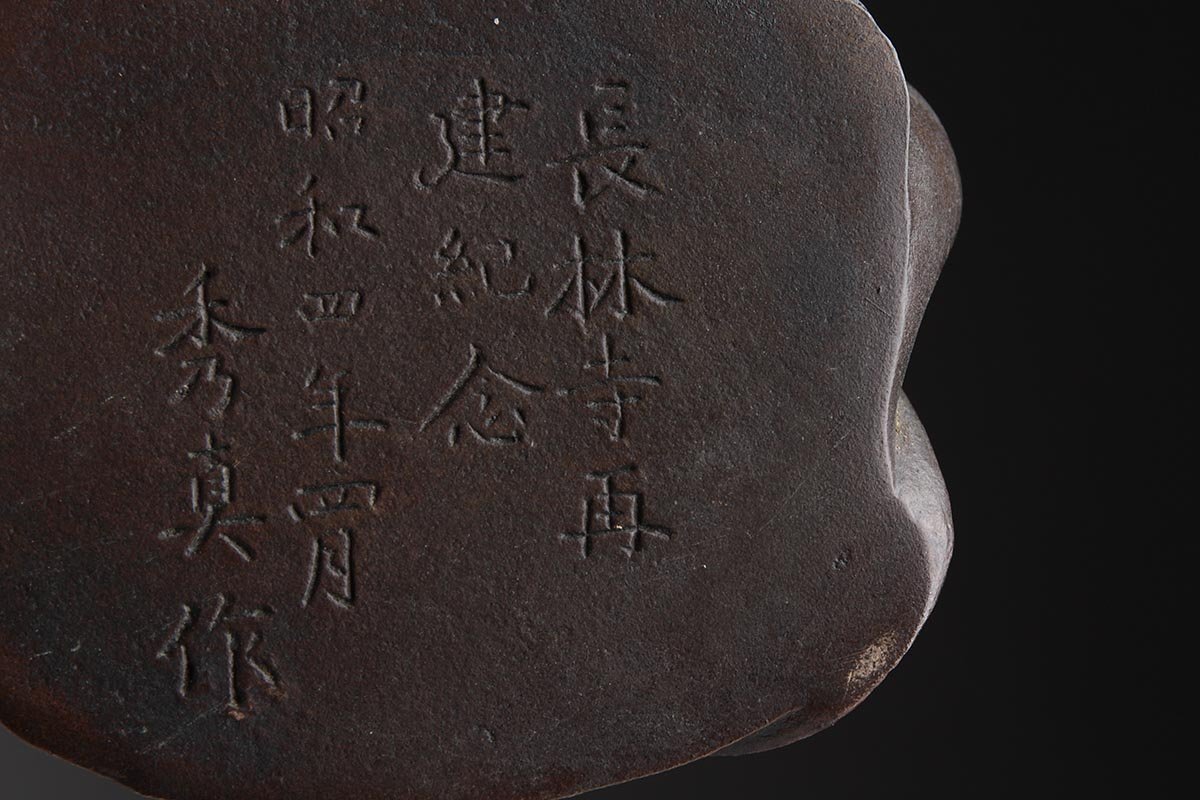 長林寺再
建紀念
昭和四年四月
秀真作